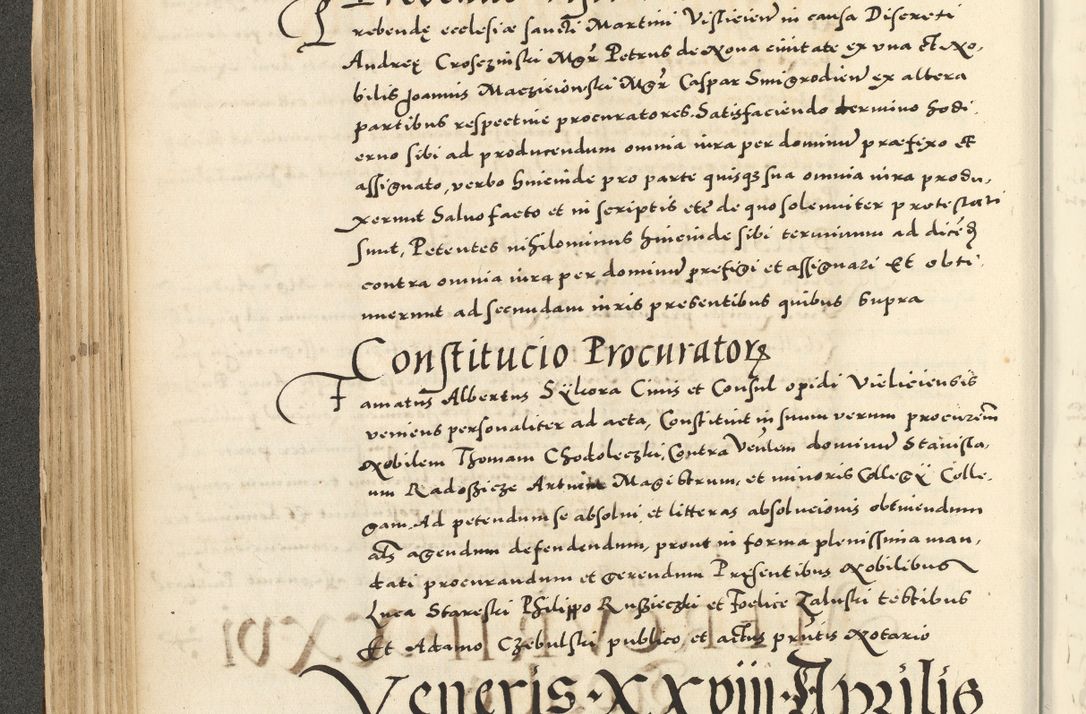 rebendę ecclesiæ sancti Martini Visliciensis in causa Discreti
Andreę Croseznski Mgr Petrus de Nova civitate ex una et No,
bilis Joannis Macziejowski Mgr Caspar Smigrodien ex altera
partibus respective procuratores. Satisfaciendo termino hodi,
erno sibi ad producendum omnia iura per dominum præfixo Et
assignato, verbo hincinde pro parte quisque sua omnia iura produ,
xerunt Salvo facto et in scriptis etc de quo solenniter protestati
sunt, Petentes nihilominus hincinde sibi terminum ad dicend
contra omnia iura per dominum prefigi et assignari Et obti,
nuerunt ad secundam iuris presentibus quibus supra
Constitucio Procurator
Famatus Albertus Sykora Civis et Consul opidi Vieliciensis
veniens personaliter ad acta, Constituit in suum verum procurem
Nobilem Thomam Chodoleczki, Contra Venlem dominum Stanisla,
um Radoszicze Artium Magistrum, et minoris Collegy Colle,
gam. Ad petendum se absolvi, et litteras absolucionis obtinendum
als agendum defendendum, prout in forma plenissima man,
dati procurandum et gerendum Presentibus Nobilibus
Luca Stareski Philippo Ruszieczki et Foelice Zaluski testibus
Et Adamo Czebulski publico et actus prntis Notario
Veneris XXviii Aprilis